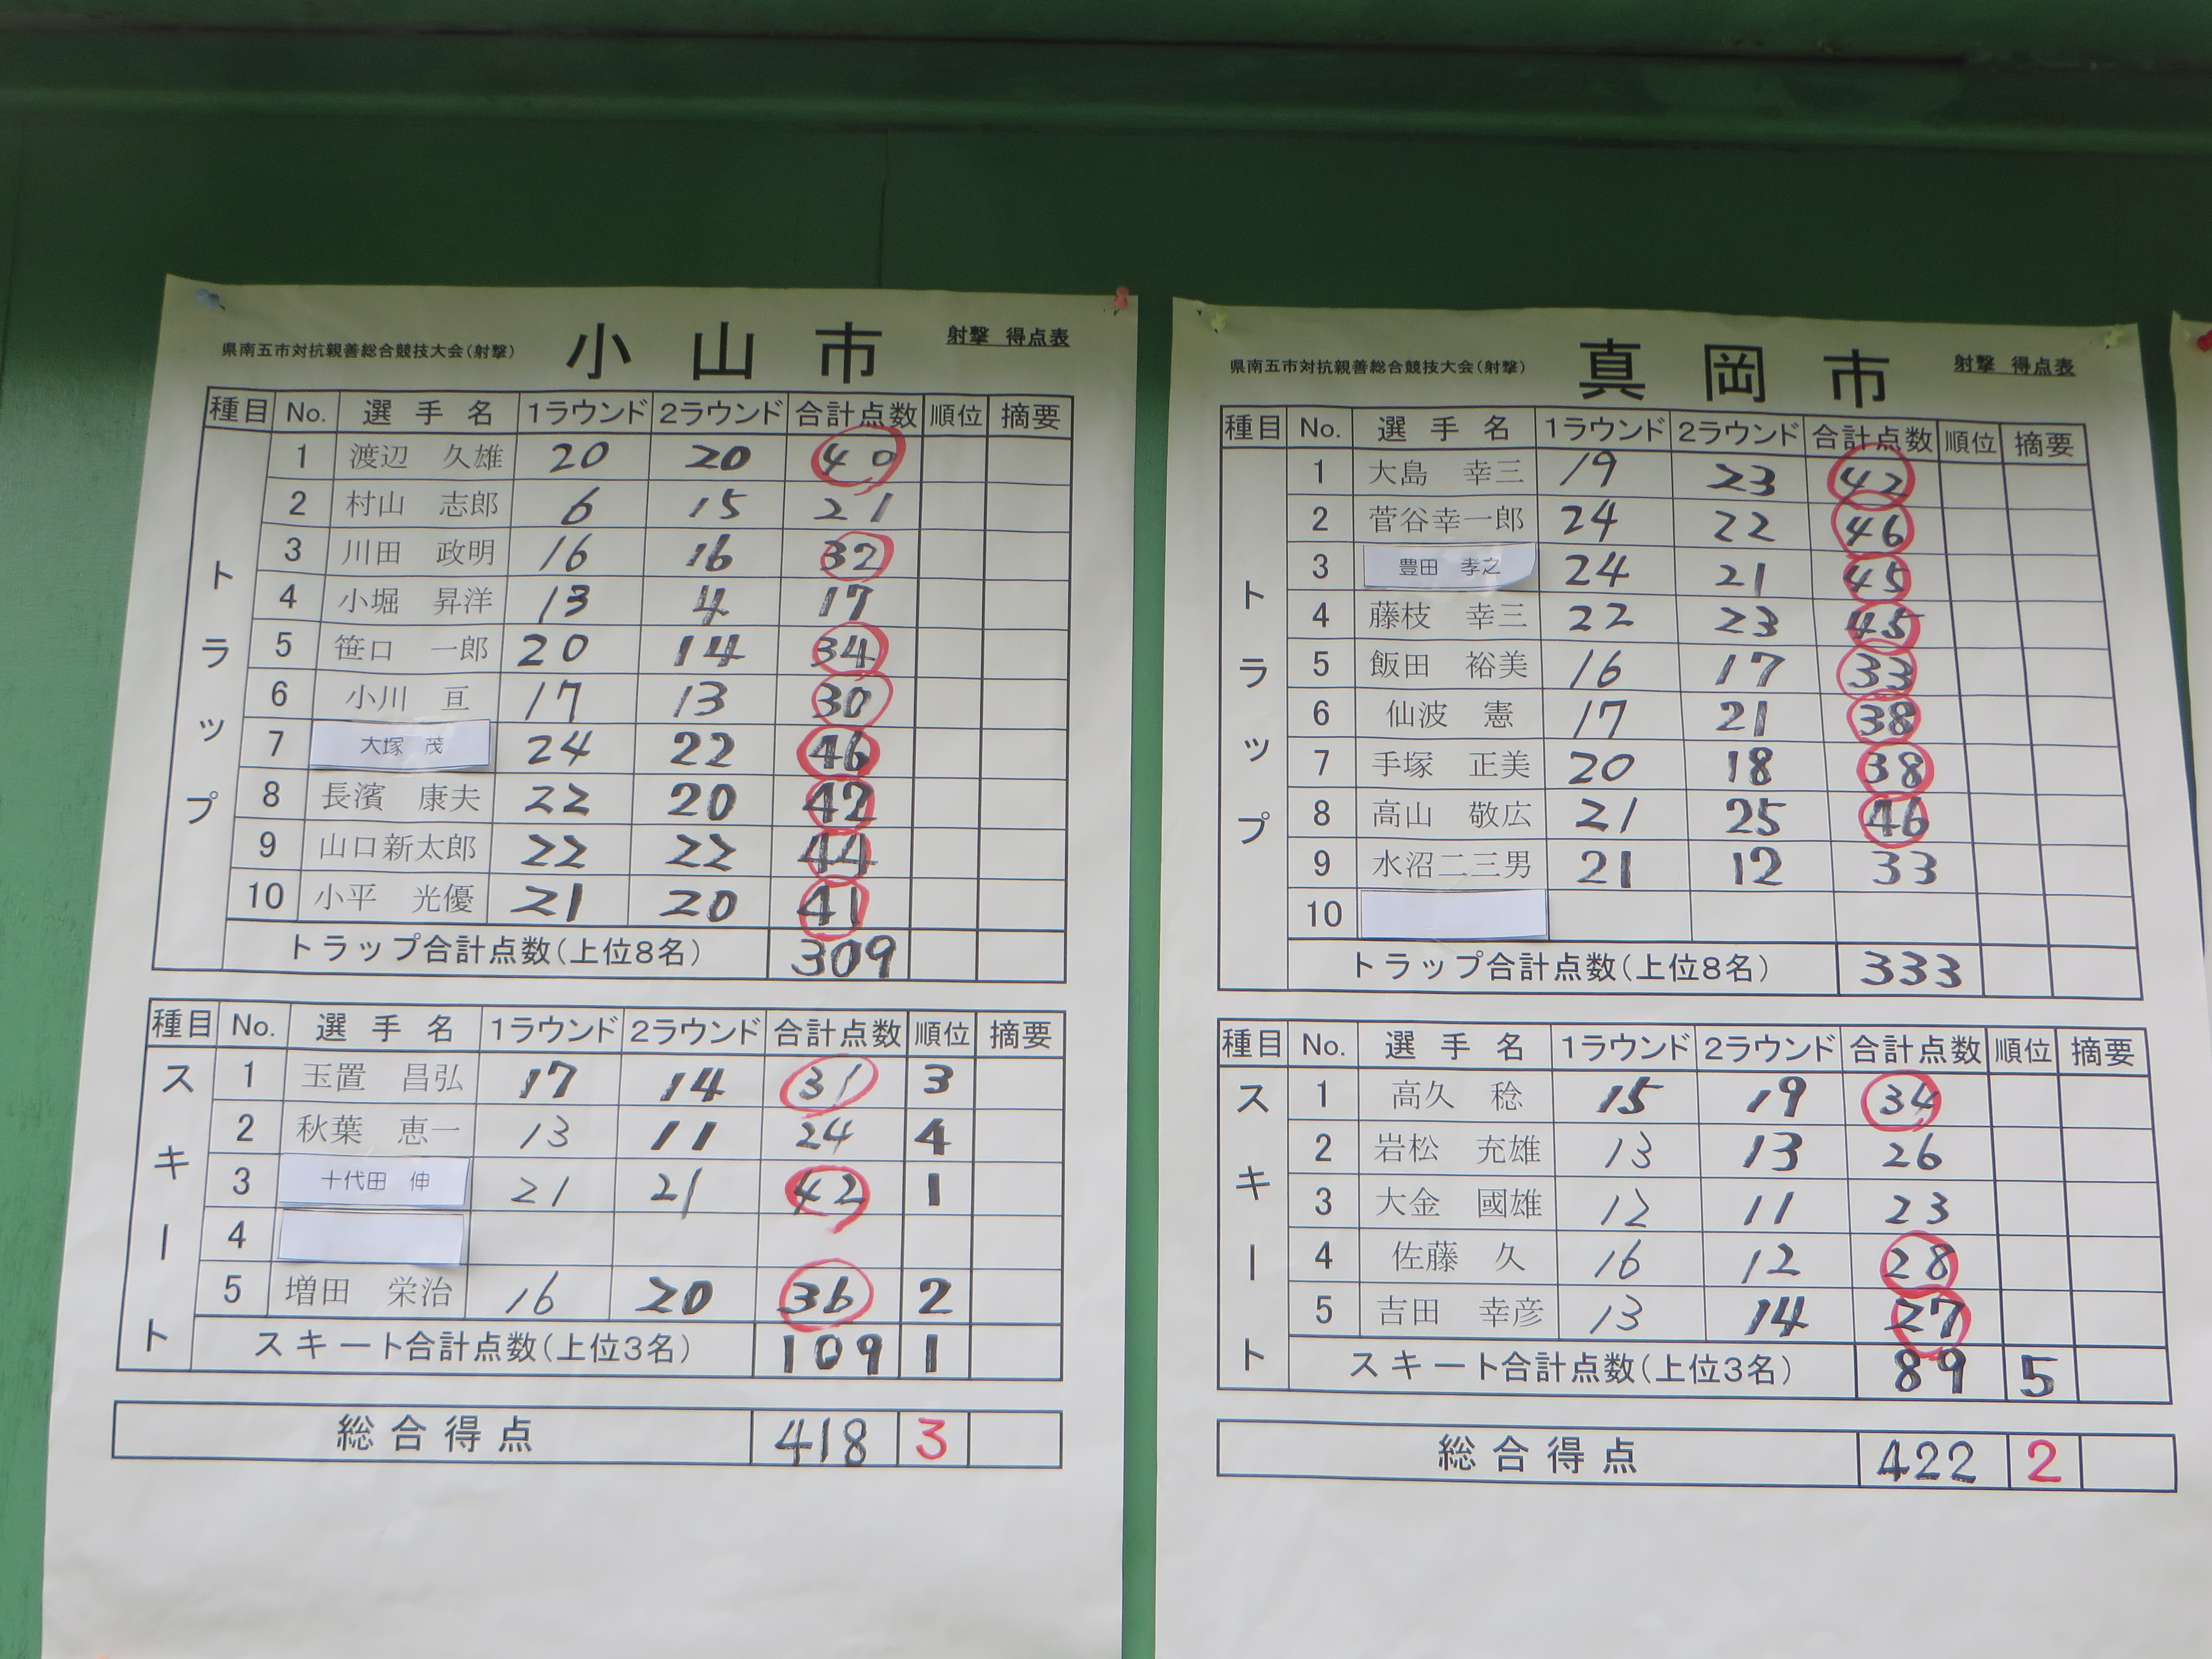 県南五市対抗親善総合競技大会(射撃) 小山市 射撃 得点表
種目 No. 選手名 1ラウンド 2ラウンド 合計点数 順位 摘要
トラップ
1 渡辺 久雄 20 20 40
2 村山 志郎 6 15 21
3 川田 政明 16 16 32
4 小堀 昇洋 13 4 17
5 笹口 一郎 20 14 34
6 小川 亘 17 13 30
7 大塚 茂 24 22 46
8 長濱 康夫 22 20 42
9 山口新太郎 22 22 44
10 小平 光優 21 20 41
トラップ合計点数(上位8名) 309
種目 No. 選手名 1ラウンド 2ラウンド 合計点数 順位 摘要
スキート
1 玉置 昌弘 17 14 31 3
2 秋葉 恵一 13 11 24 4
3 十代田 伸 21 21 42 1
4
5 増田 栄治 16 20 36 2
スキート合計点数(上位3名) 109 1
総合得点 418 3
県南五市対抗親善総合競技大会(射撃) 真岡市 射撃 得点表
種目 No. 選手名 1ラウンド 2ラウンド 合計点数 順位 摘要
トラップ
1 大島 幸三 19 23 42
2 菅谷幸一郎 24 22 46
3 豊田 孝之 24 21 45
4 藤枝 幸三 22 23 45
5 飯田 裕美 16 17 33
6 仙波 憲 17 21 38
7 手塚 正美 20 18 38
8 高山 敬広 21 25 46
9 水沼二三男 21 12 33
10
トラップ合計点数(上位8名) 333
種目 No. 選手名 1ラウンド 2ラウンド 合計点数 順位 摘要
スキート
1 高久 稔 15 19 34
2 岩松 充雄 13 13 26
3 大金 國雄 12 11 23
4 佐藤 久 16 12 28
5 吉田 幸彦 13 14 27
スキート合計点数(上位3名) 89 5
総合得点 422 2